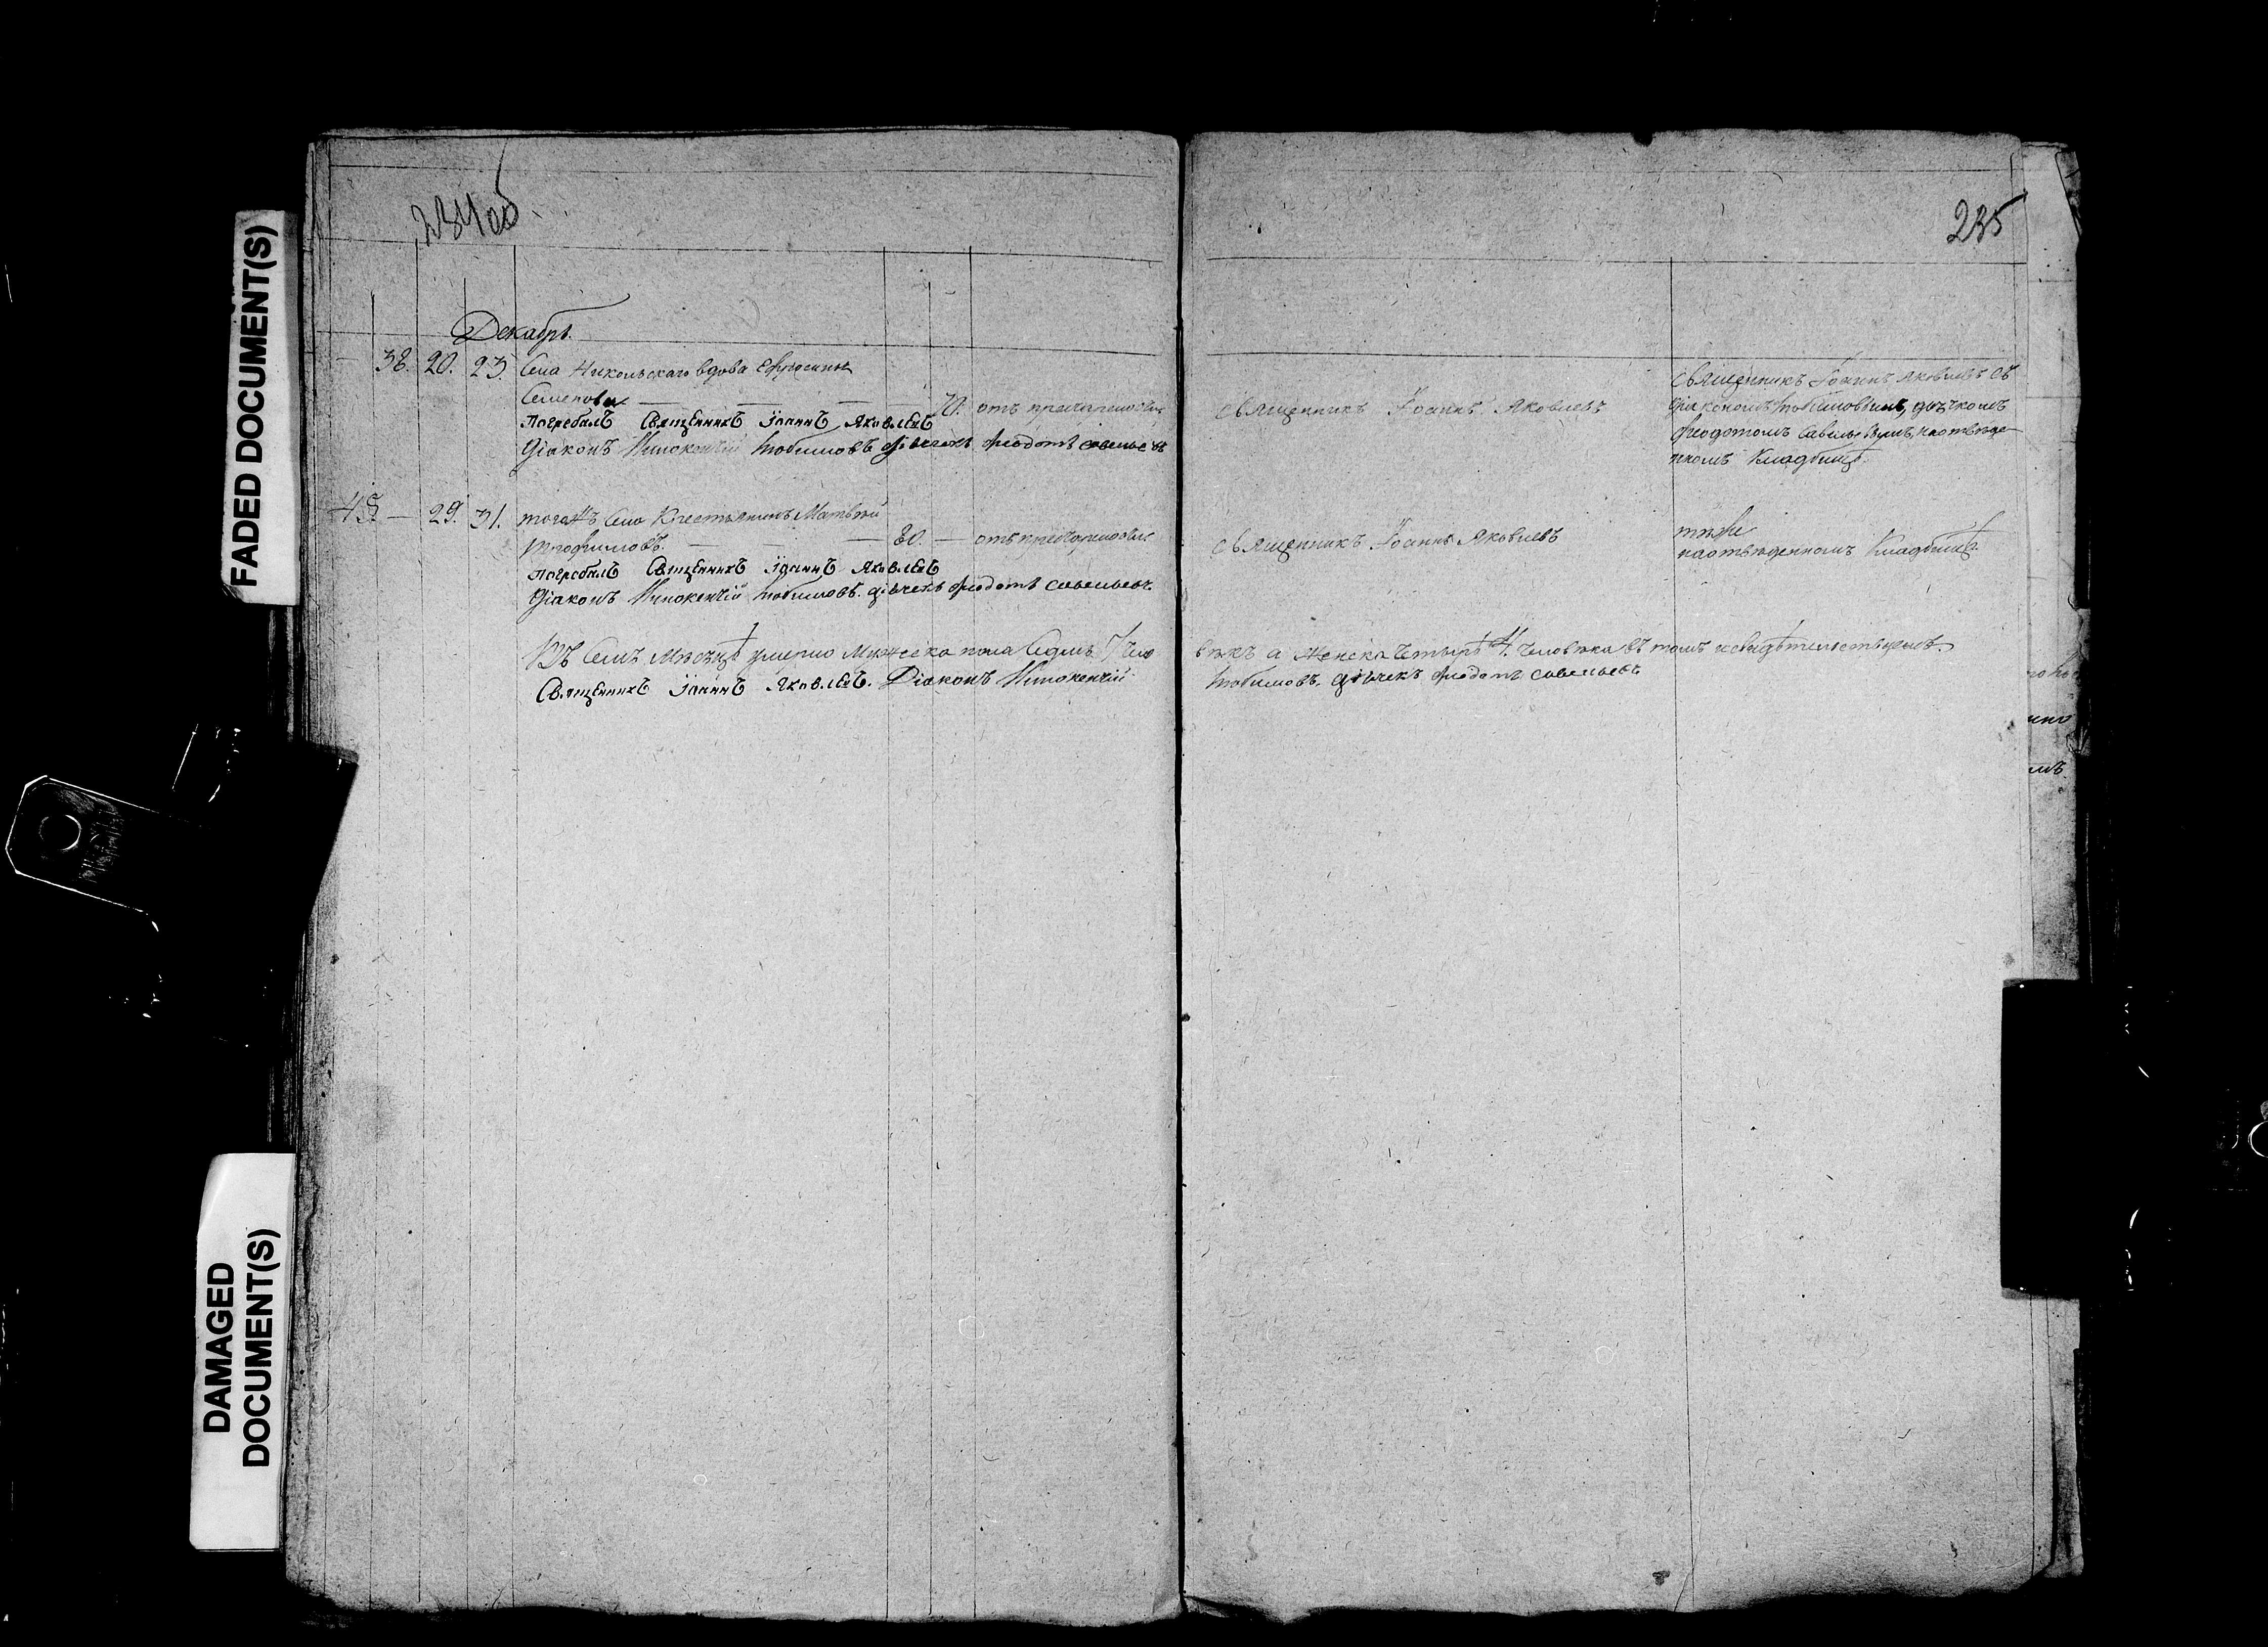 FADED DOCUMENT(S)
DAMAGED
DOCUMENT(S)
234 об
Декабрь.
38. 20. 23. Села Никольскаго вдова Ефросинья
Семенова — — — 70. отъ престарелости
погребалъ Священникъ Іоаннъ Яковлевъ
Діаконъ Инокентій Любимовъ дьячекъ Феодотъ савельевъ
45. — 29. 31. тогожъ села Крестьянинъ Матвей
Трофимовъ. — — — 80. — отъ престарелости
погребалъ Священникъ Іоаннъ Яковлевъ
Діаконъ Инокентій Любимовъ. дьячекъ Феодотъ савельевъ.
Въ семъ Месяце умерло Мужеска пола Седмь 7 чело
Священникъ Іоаннъ Яковлевъ. Діаконъ Инокентій
235
священникъ Іоаннъ Яковлевъ
священникъ Іоаннъ Яковлевъ съ
діакономъ Любимовымъ, дьячкомъ
Феодотомъ Савельевымъ, на отведе-
нномъ Кладбище.
священникъ Іоаннъ Яковлевъ
теже
на отведенномъ Кладбище.
векъ а женска четыре 4. человека въ томъ и свидетельствуемъ.
Любимовъ. дьячекъ Феодотъ савельевъ